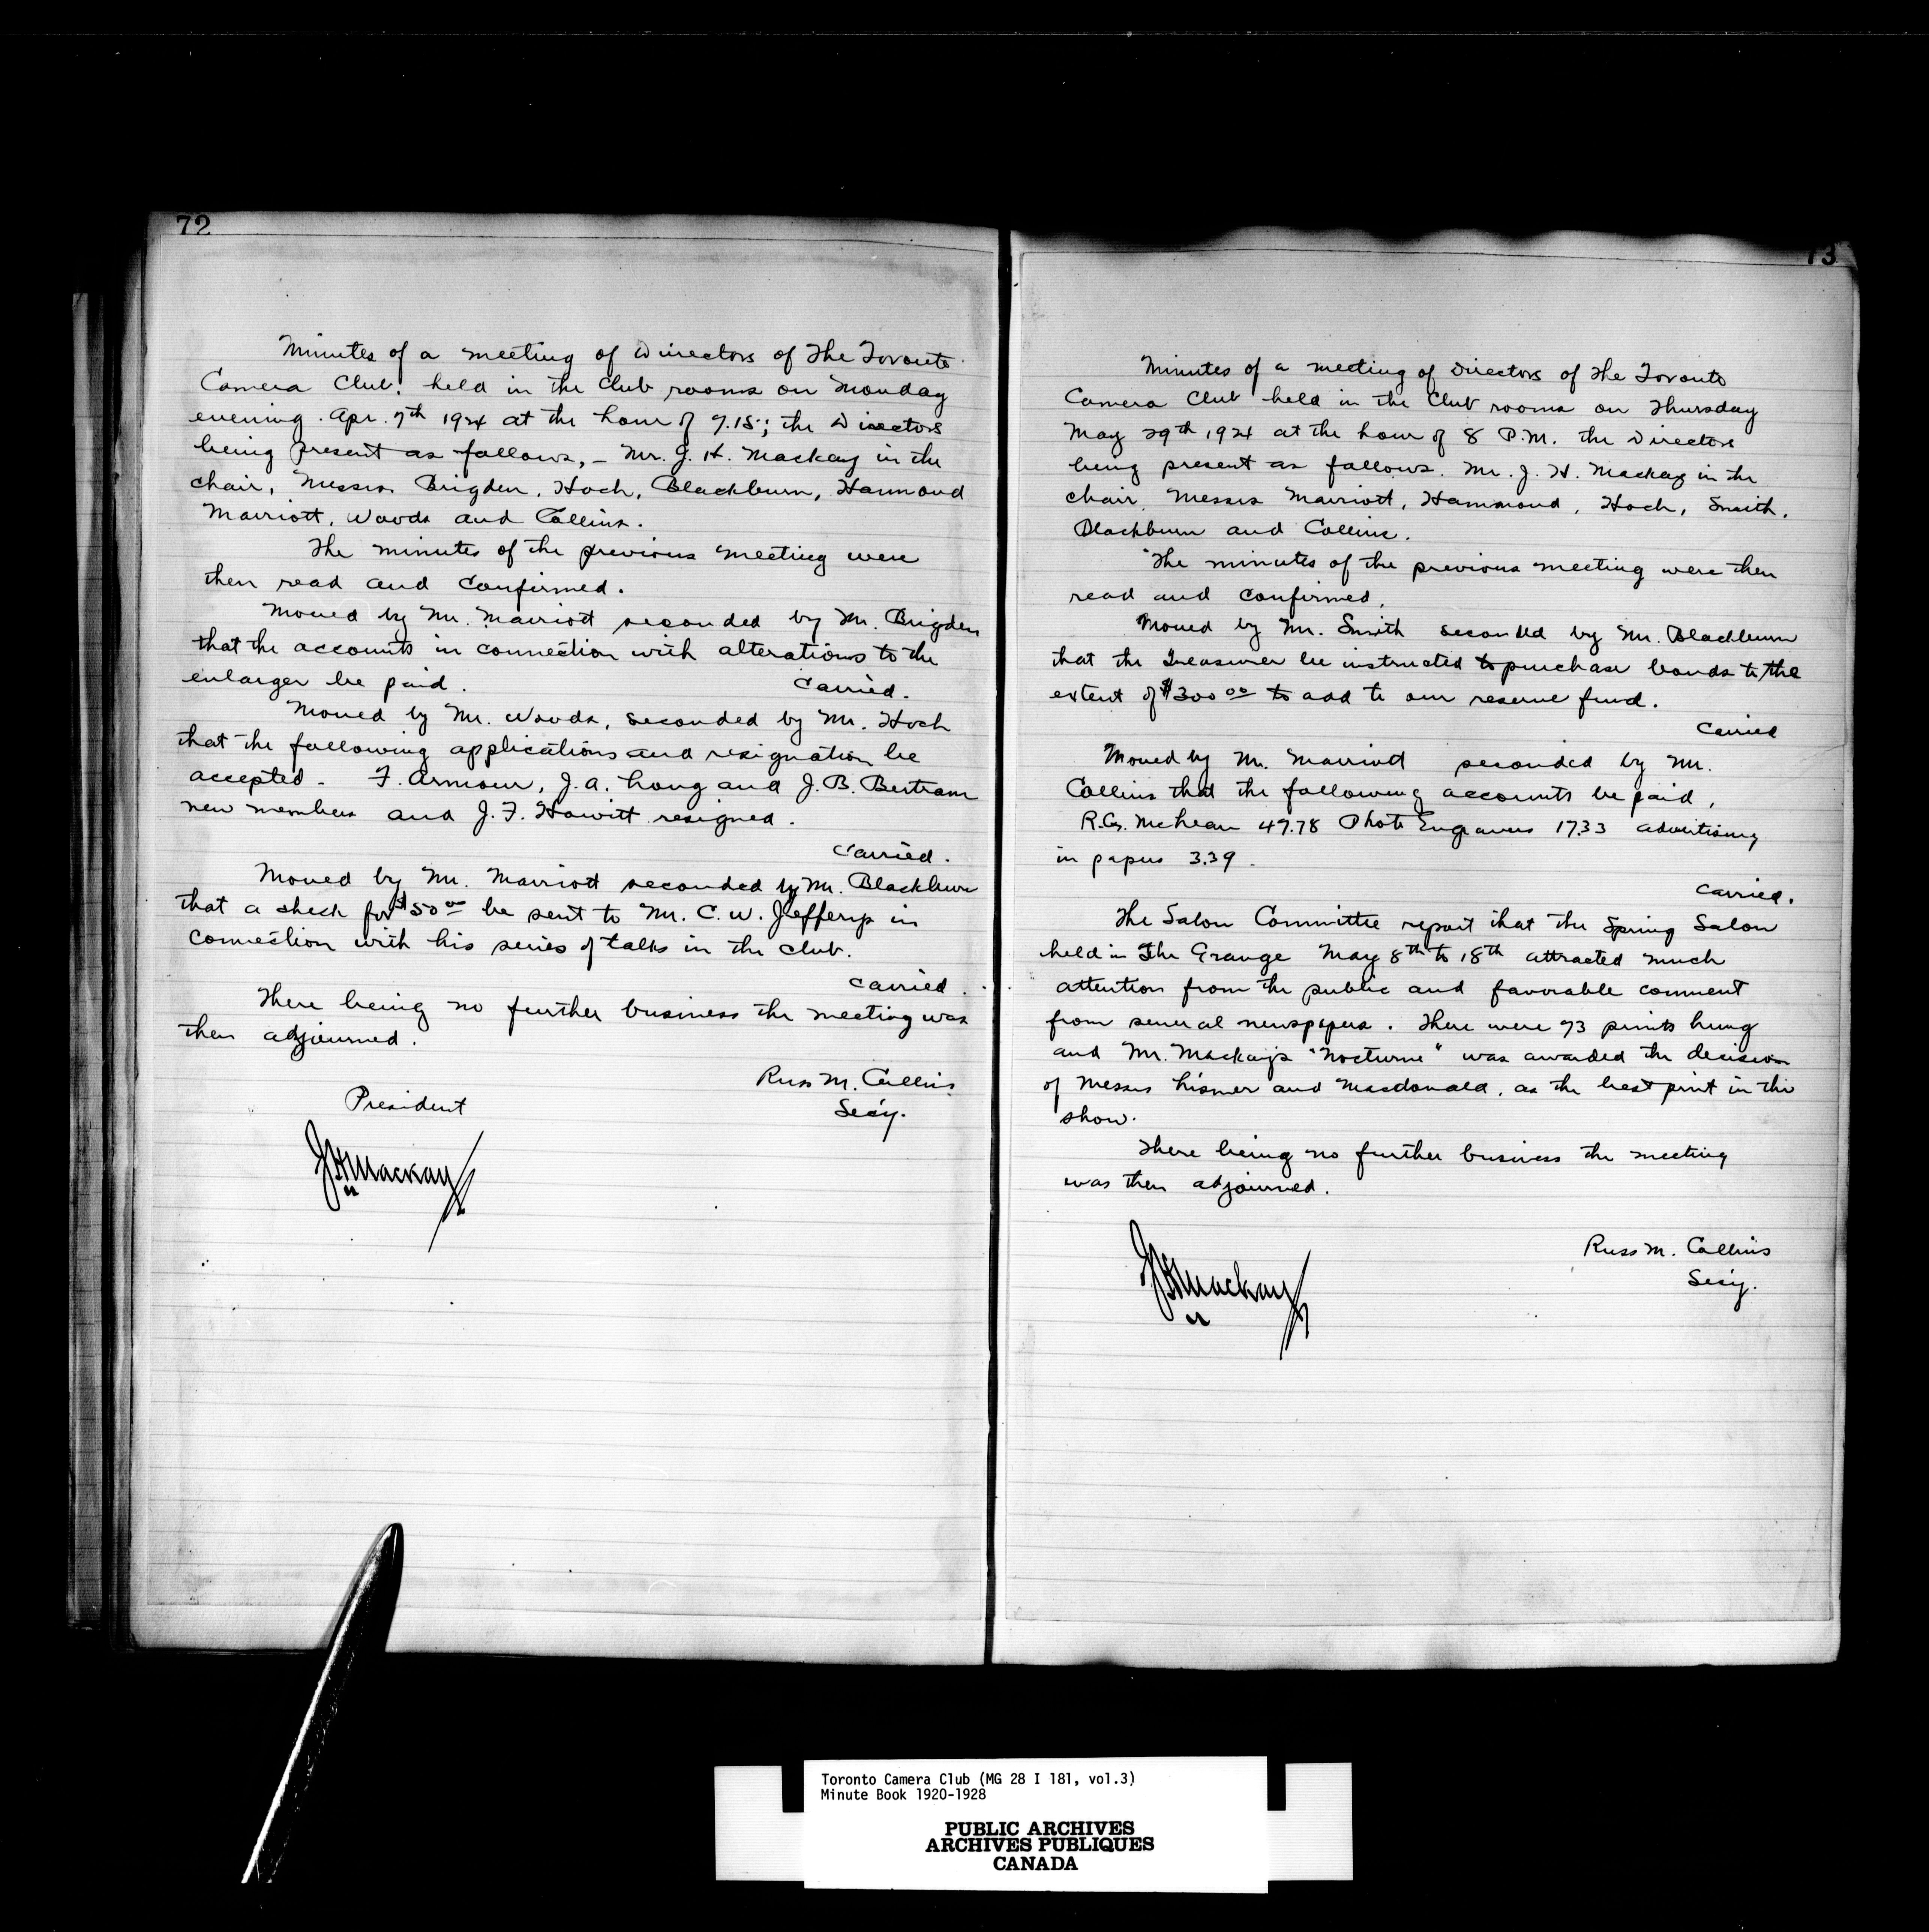 72
Minutes of a meeting of Directors of The Toronto
Camera Club, held in the Club rooms on Monday
evening. Apr. 7th 1924 at the hour of 7.15; the Directors
being present as follows, – Mr. J. H. Mackay in the
chair, Messrs. Brigden, Hoch, Blackburn, Hammond
Marriott, Woods and Collins.
The minutes of the previous meeting were
then read and confirmed.
Moved by Mr. Marriott seconded by Mr. Brigden
that the accounts in connection with alterations to the
enlarger be paid. Carried.
Moved by Mr. Woods, seconded by Mr. Hoch
that the following applications and resignation be
accepted – F. Armour, J. A. Long and J. B. Bertram
new members and J. F. Howitt resigned.
Carried.
Moved by Mr. Marriott seconded by Mr. Blackburn
that a check for $50 00 be sent to Mr. C. W. Jefferys in
connection with his series of talks in the club.
Carried.
There being no further business the meeting was
then adjourned.
Russ M. Collins
President Secy.
J H Mackay
73
Minutes of a meeting of Directors of The Toronto
Camera Club held in the Club rooms on Thursday
May 29th 1924 at the hour of 8 P.M. the Directors
being present as follows. Mr. J. H. Mackay in the
chair. Messrs Marriott, Hammond, Hoch, Smith,
Blackburn and Collins.
The minutes of the previous meeting were then
read and confirmed.
Moved by Mr. Smith seconded by Mr. Blackburn
that the Treasurer be instructed to purchase bonds to the
extent of $300 00 to add to our reserve fund.
Carried
Moved by Mr. Marriott seconded by Mr.
Collins that the following accounts be paid,
R. G. McLean 47.78 Photo Engravers 17.33 advertising
in papers 3.39.
Carried.
The Salon Committee report that the Spring Salon
held in The Grange May 8th to 18th attracted much
attention from the public and favorable comment
from several newspapers. There were 73 prints hung
and Mr. Mackay's "Nocturne" was awarded the decision
of Messrs Lismer and Macdonald, as the best print in the
show.
There being no further business the meeting
was then adjourned.
Russ M. Collins
Secy.
J H Mackay
Toronto Camera Club (MG 28 I 181, vol.3)
Minute Book 1920-1928
PUBLIC ARCHIVES
ARCHIVES PUBLIQUES
CANADA